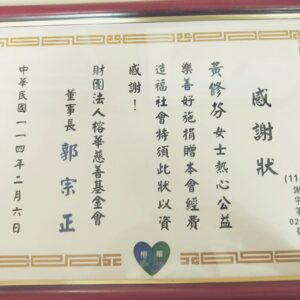 感謝狀
黃修芬女士熱心公益
樂善好施捐贈本會經費
造福社會特頒此狀以資
感謝！
財團法人榕華慈善基金會
董事長 郭宗正
中華民國一一四年二月六日
(114
02
榕 華